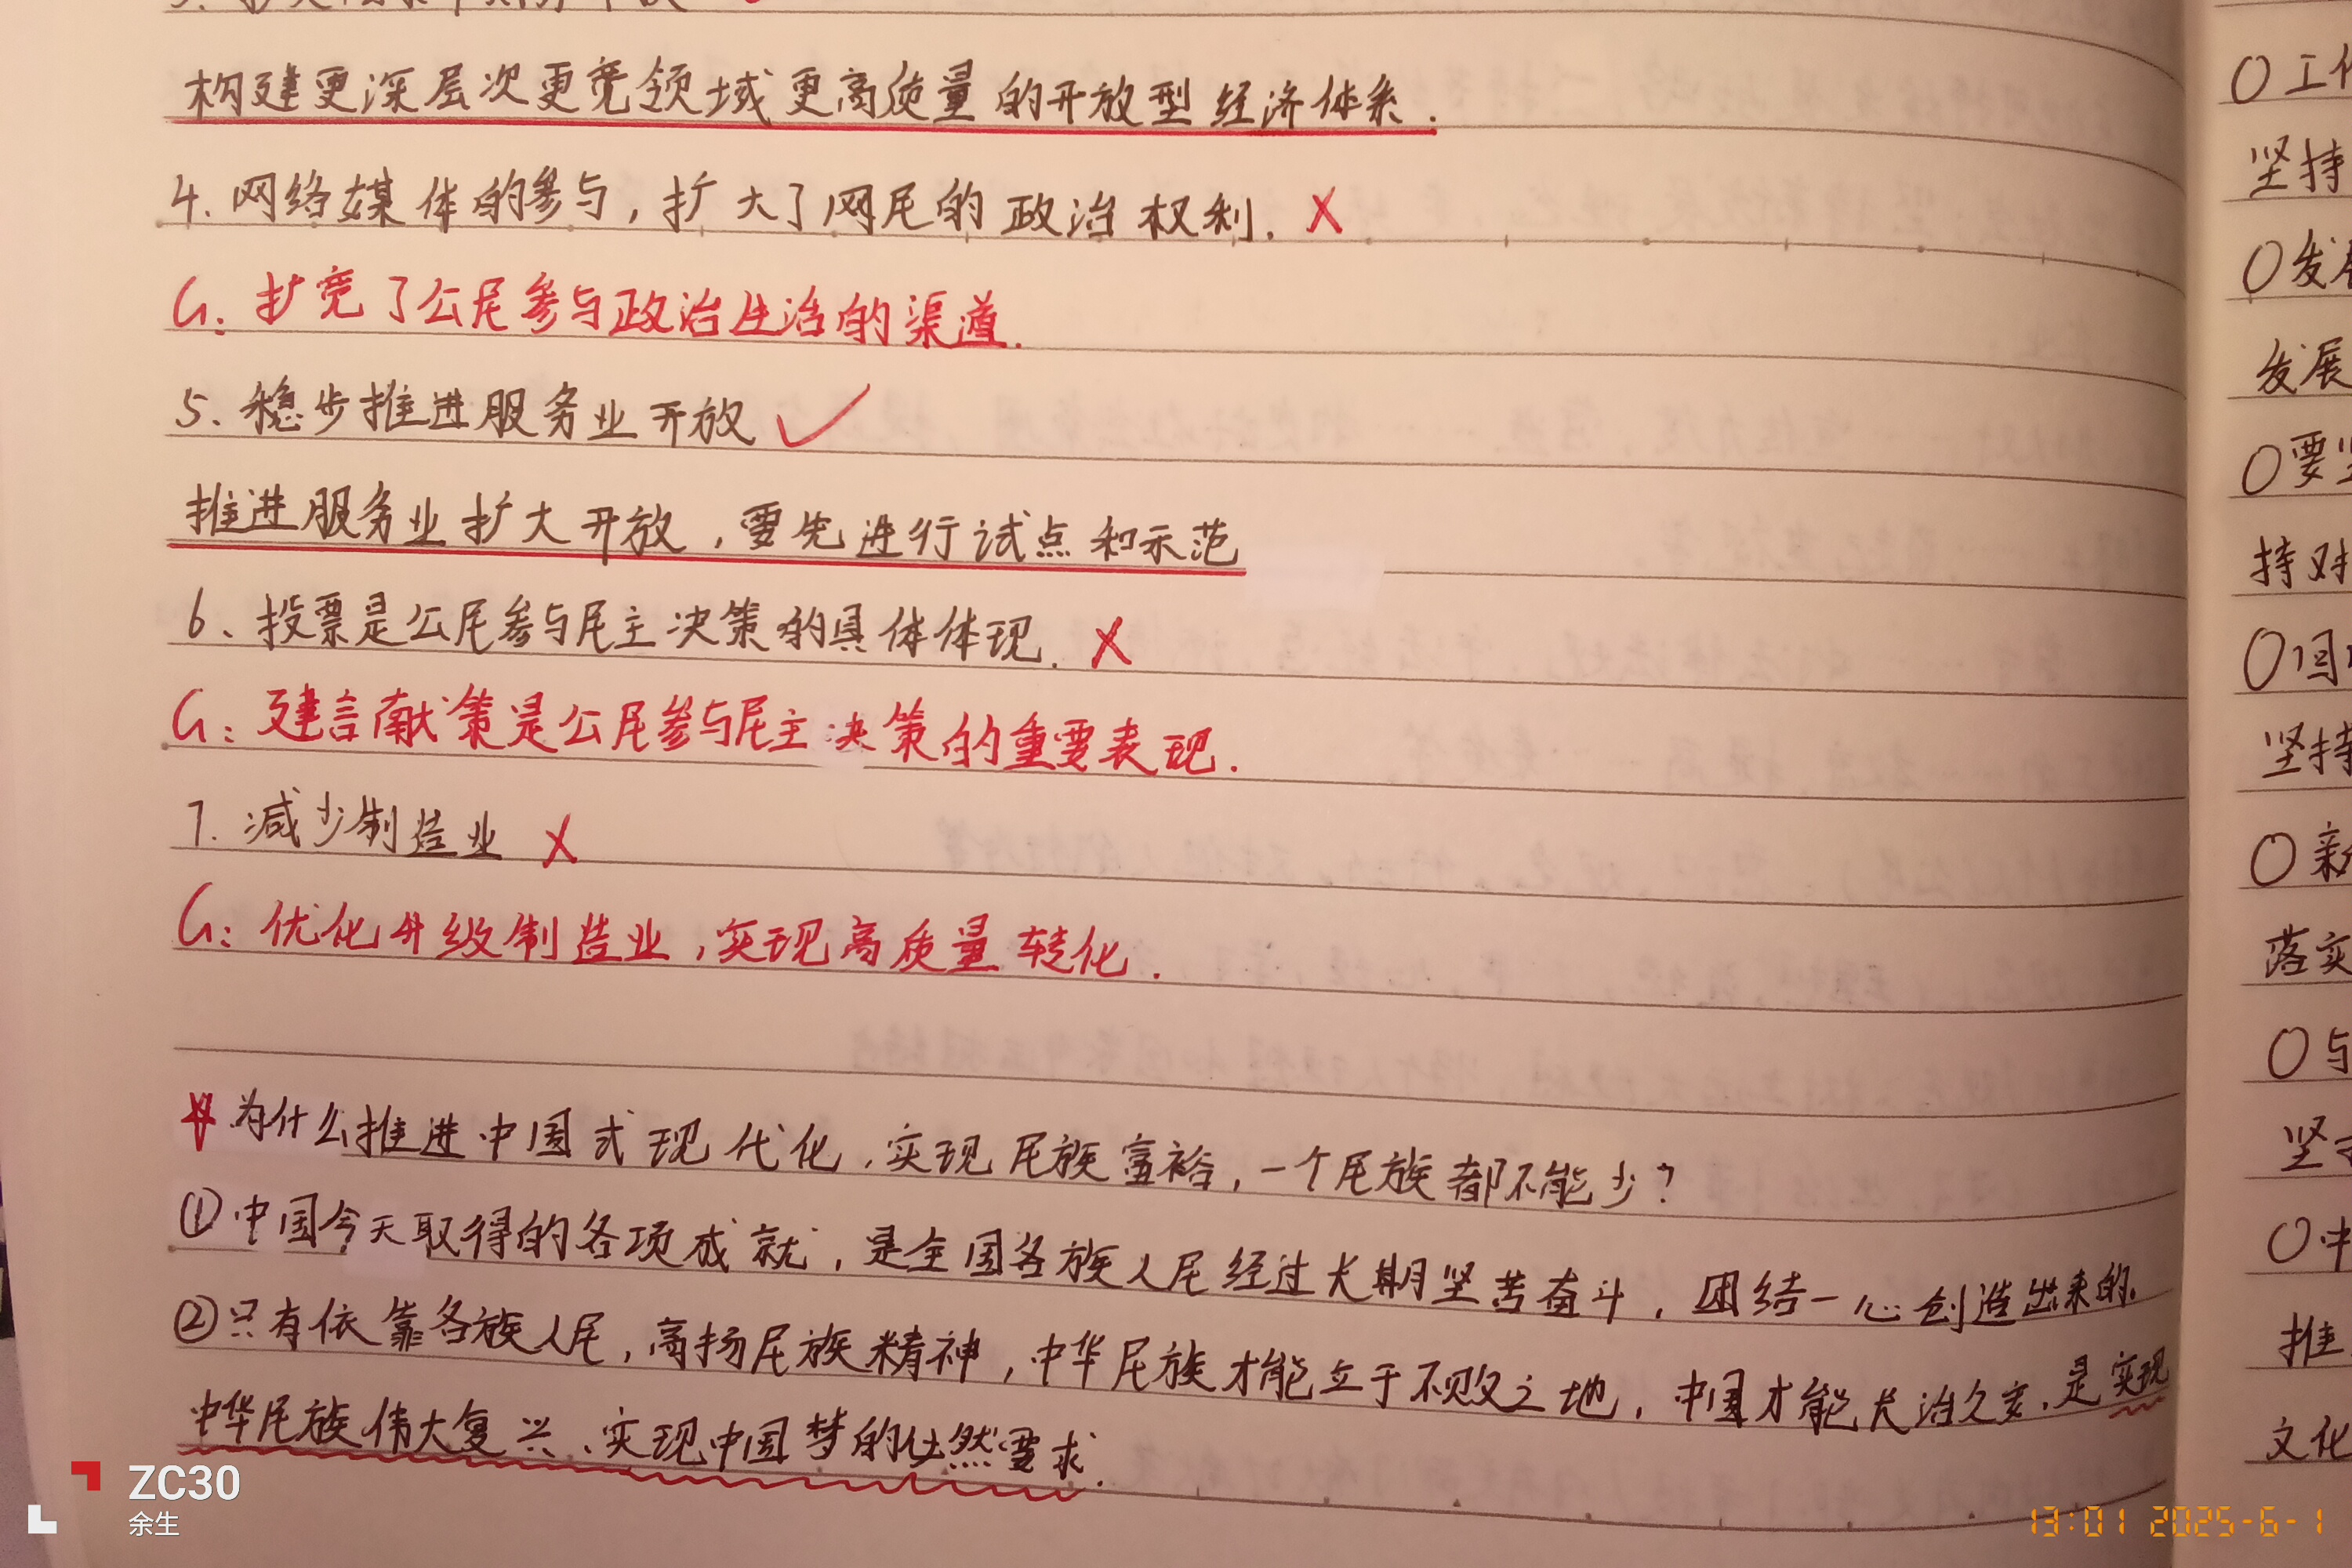 构建更深层次更宽领域更高质量的开放型经济体系.
4. 网络媒体的参与,扩大了网民的政治权利. X
G: 扩宽了公民参与政治生活的渠道.
5、稳步推进服务业开放 ✓
推进服务业扩大开放,要先进行试点和示范
6、投票是公民参与民主决策的具体体现. X
G: 建言献策是公民参与民主决策的重要表现.
7. 减少制造业 X
G: 优化升级制造业,实现高质量转化.
☆为什么推进中国式现代化,实现民族富裕,一个民族都不能少?
①中国今天取得的各项成就,是全国各族人民经过长期坚苦奋斗,团结一心创造出来的.
②只有依靠各族人民,高扬民族精神,中华民族才能立于不败之地,中国才能长治久安.是实现
中华民族伟大复兴、实现中国梦的必然要求.
○工作
坚持
○发展
发展
○要坚
持对
坚持
○新
落实
○与
坚持
○中
推
文化
ZC30
余生
13:01 2025-6-1